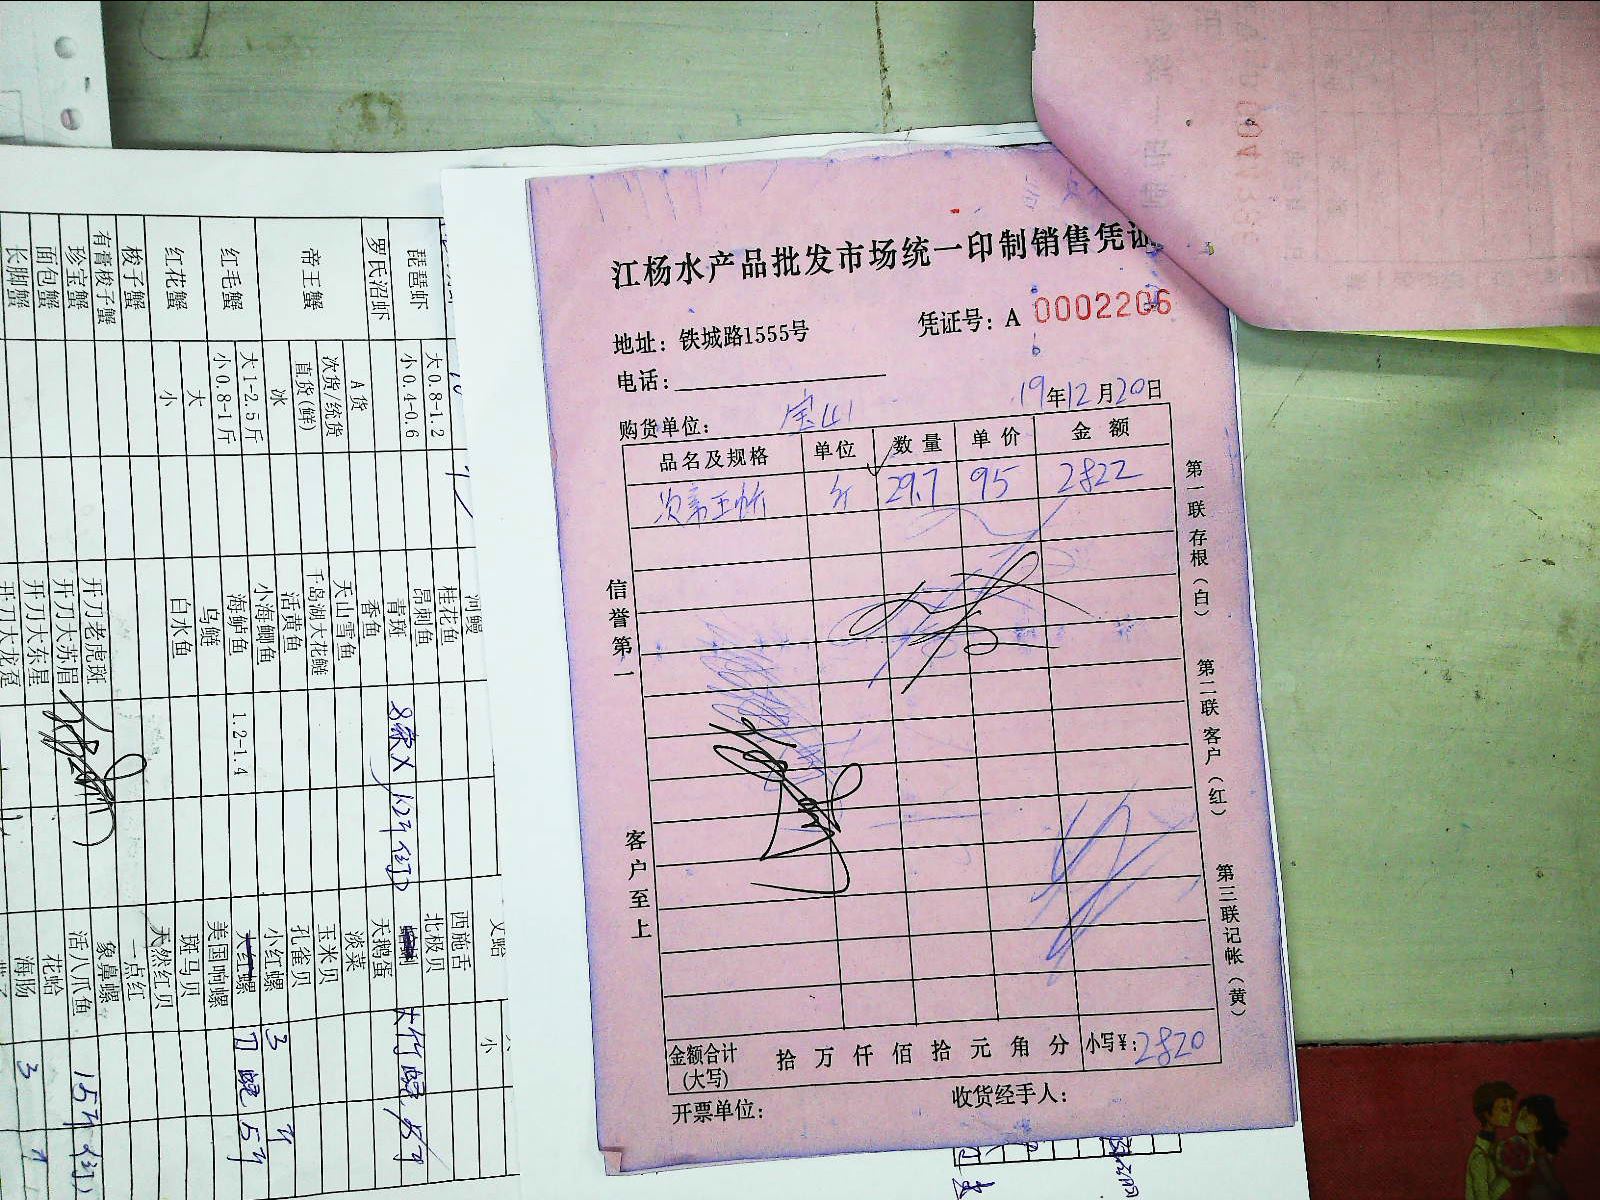 江杨水产品批发市场统一印制销售凭证
地址：铁城路1555号
凭证号：A 0002206
电话：
19年12月20日
购货单位：宝山
品名及规格 单位 数量 单价 金额
次帝王蟹 斤 29.7 95 2822
信誉第一
客户至上
第一联存根（白）
第二联客户（红）
第三联记帐（黄）
金额合计(大写) 拾 万 仟 佰 拾 元 角 分 小写¥：2820
开票单位：
收货经手人：
琵琶虾 大0.8-1.2
小0.4-0.6
罗氏沼虾
帝王蟹 A货
次货/统货
直货(鲜)
冰
红毛蟹 大1-2.5斤
小0.8-1斤
红花蟹 大
小
梭子蟹
有膏梭子蟹
珍宝蟹
面包蟹
长脚蟹
河鳗
桂花鱼
昂刺鱼
青斑
香鱼
天山雪鱼
千岛湖大花鲢
活黄鱼
小海鲫鱼
海鲈鱼 1.2-1.4
乌鲢
白水鱼
开刀老虎斑
开刀大苏眉
开刀大东星
开刀大龙趸
西施舌
北极贝
天鹅蛋
淡菜
玉米贝
孔雀贝
小红螺 3
大红螺
美国响螺
斑马贝
天然红贝
一点红
象鼻螺
活八爪鱼
花蛤
海肠 3
小